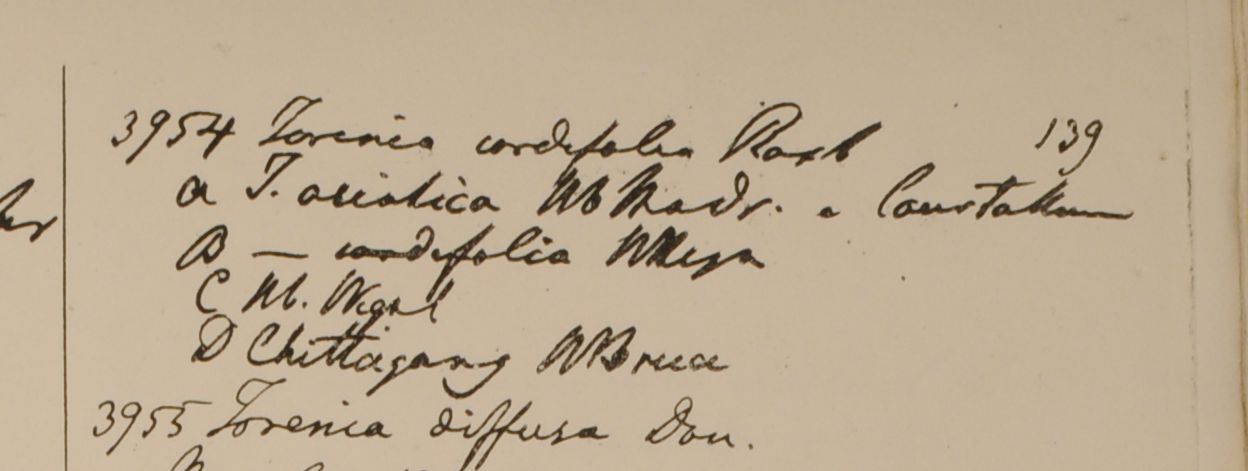 139
3954 Torenia cordifolia Roxb
a T. asiatica Hb Madr. a Courtallum
B — cordifolia HHeyn
C Hb. Wight
D Chittagong WBruce
3955 Torenia diffusa Don.